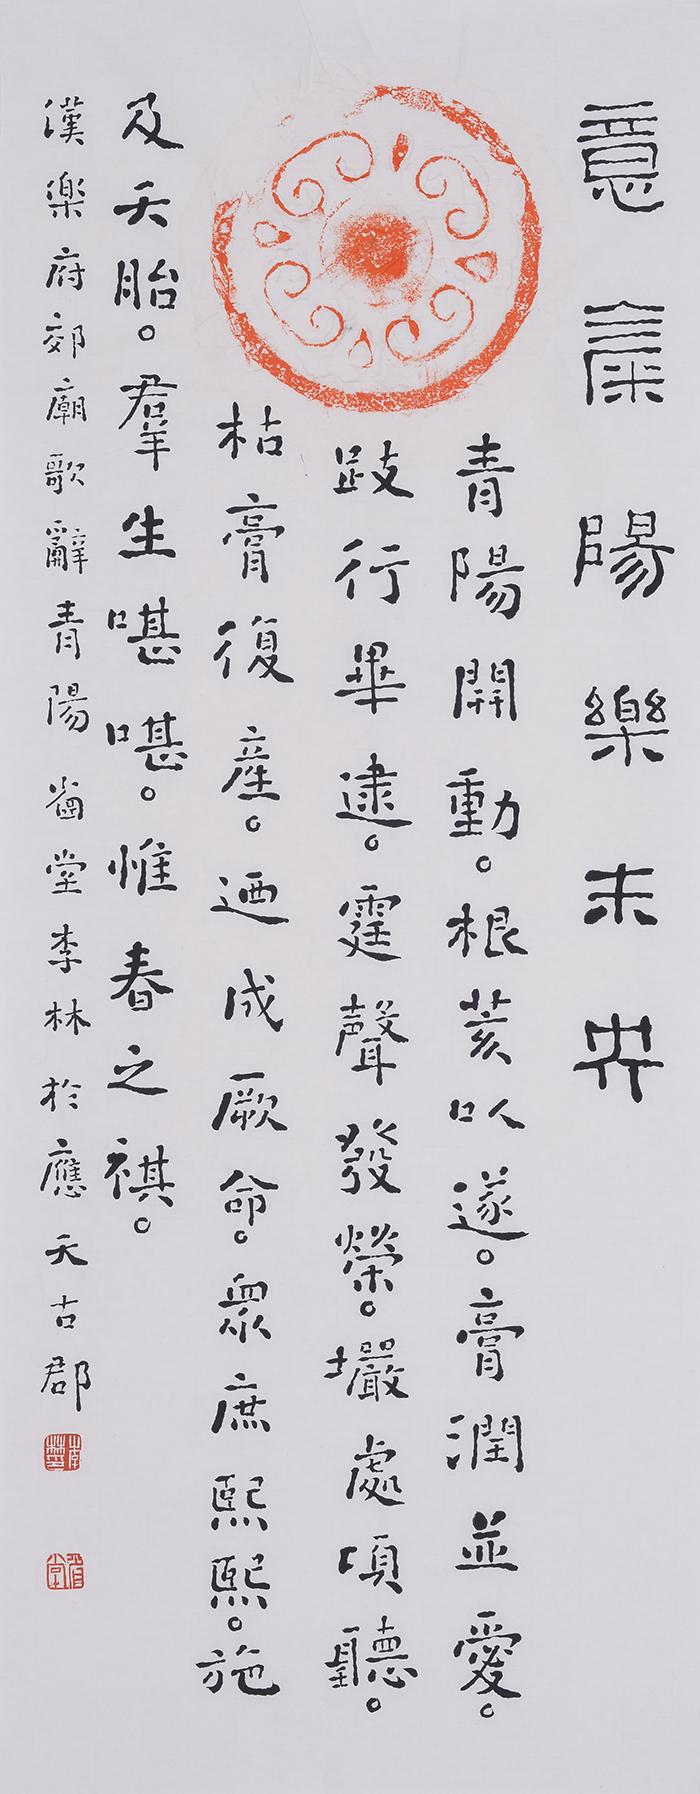 意氣陽樂未央
青陽開動。根荄以遂。膏潤並愛。
跂行畢逮。霆聲發榮。壧處頃聽。
枯膏復產。迺成厥命。衆庶熙熙。施
及夭胎。羣生啿啿。惟春之祺。
漢樂府郊廟歌辭青陽 堂李林於應天古郡